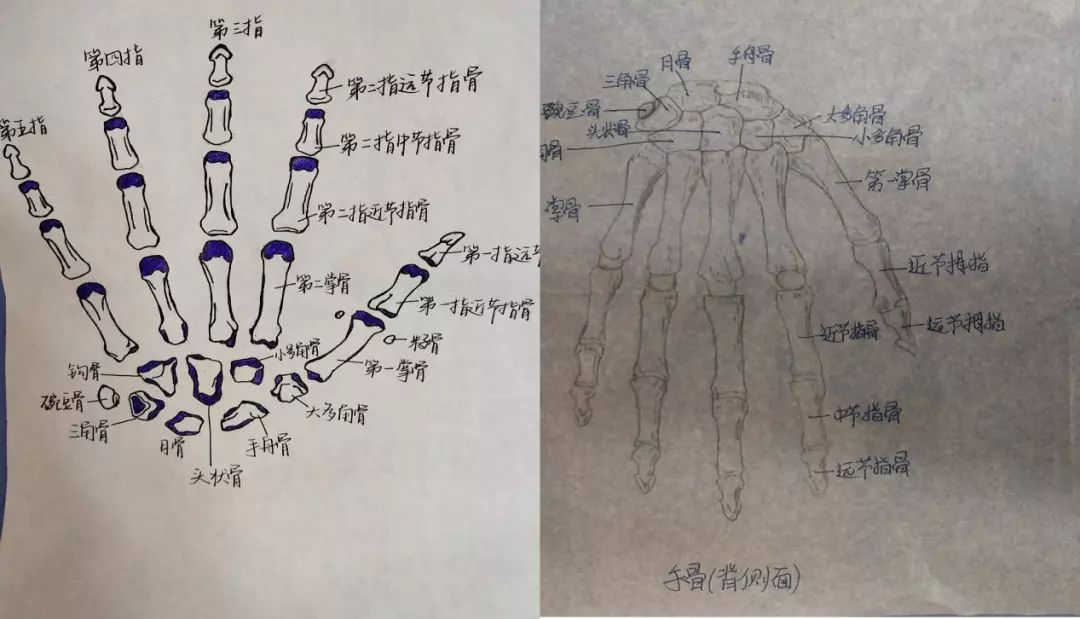 第三指
第四指
第五指
第二指远节指骨
第二指中节指骨
第二指近节指骨
第一指远节
第二掌骨
第一指近节指骨
籽骨
小多角骨
第一掌骨
钩骨
豌豆骨
三角骨
月骨
手舟骨
大多角骨
头状骨
月骨
手舟骨
三角骨
豌豆骨
大多角骨
头状骨
小多角骨
骨
第一掌骨
掌骨
近节拇指
远节拇指
近节指骨
中节指骨
远节指骨
手骨(背侧面)